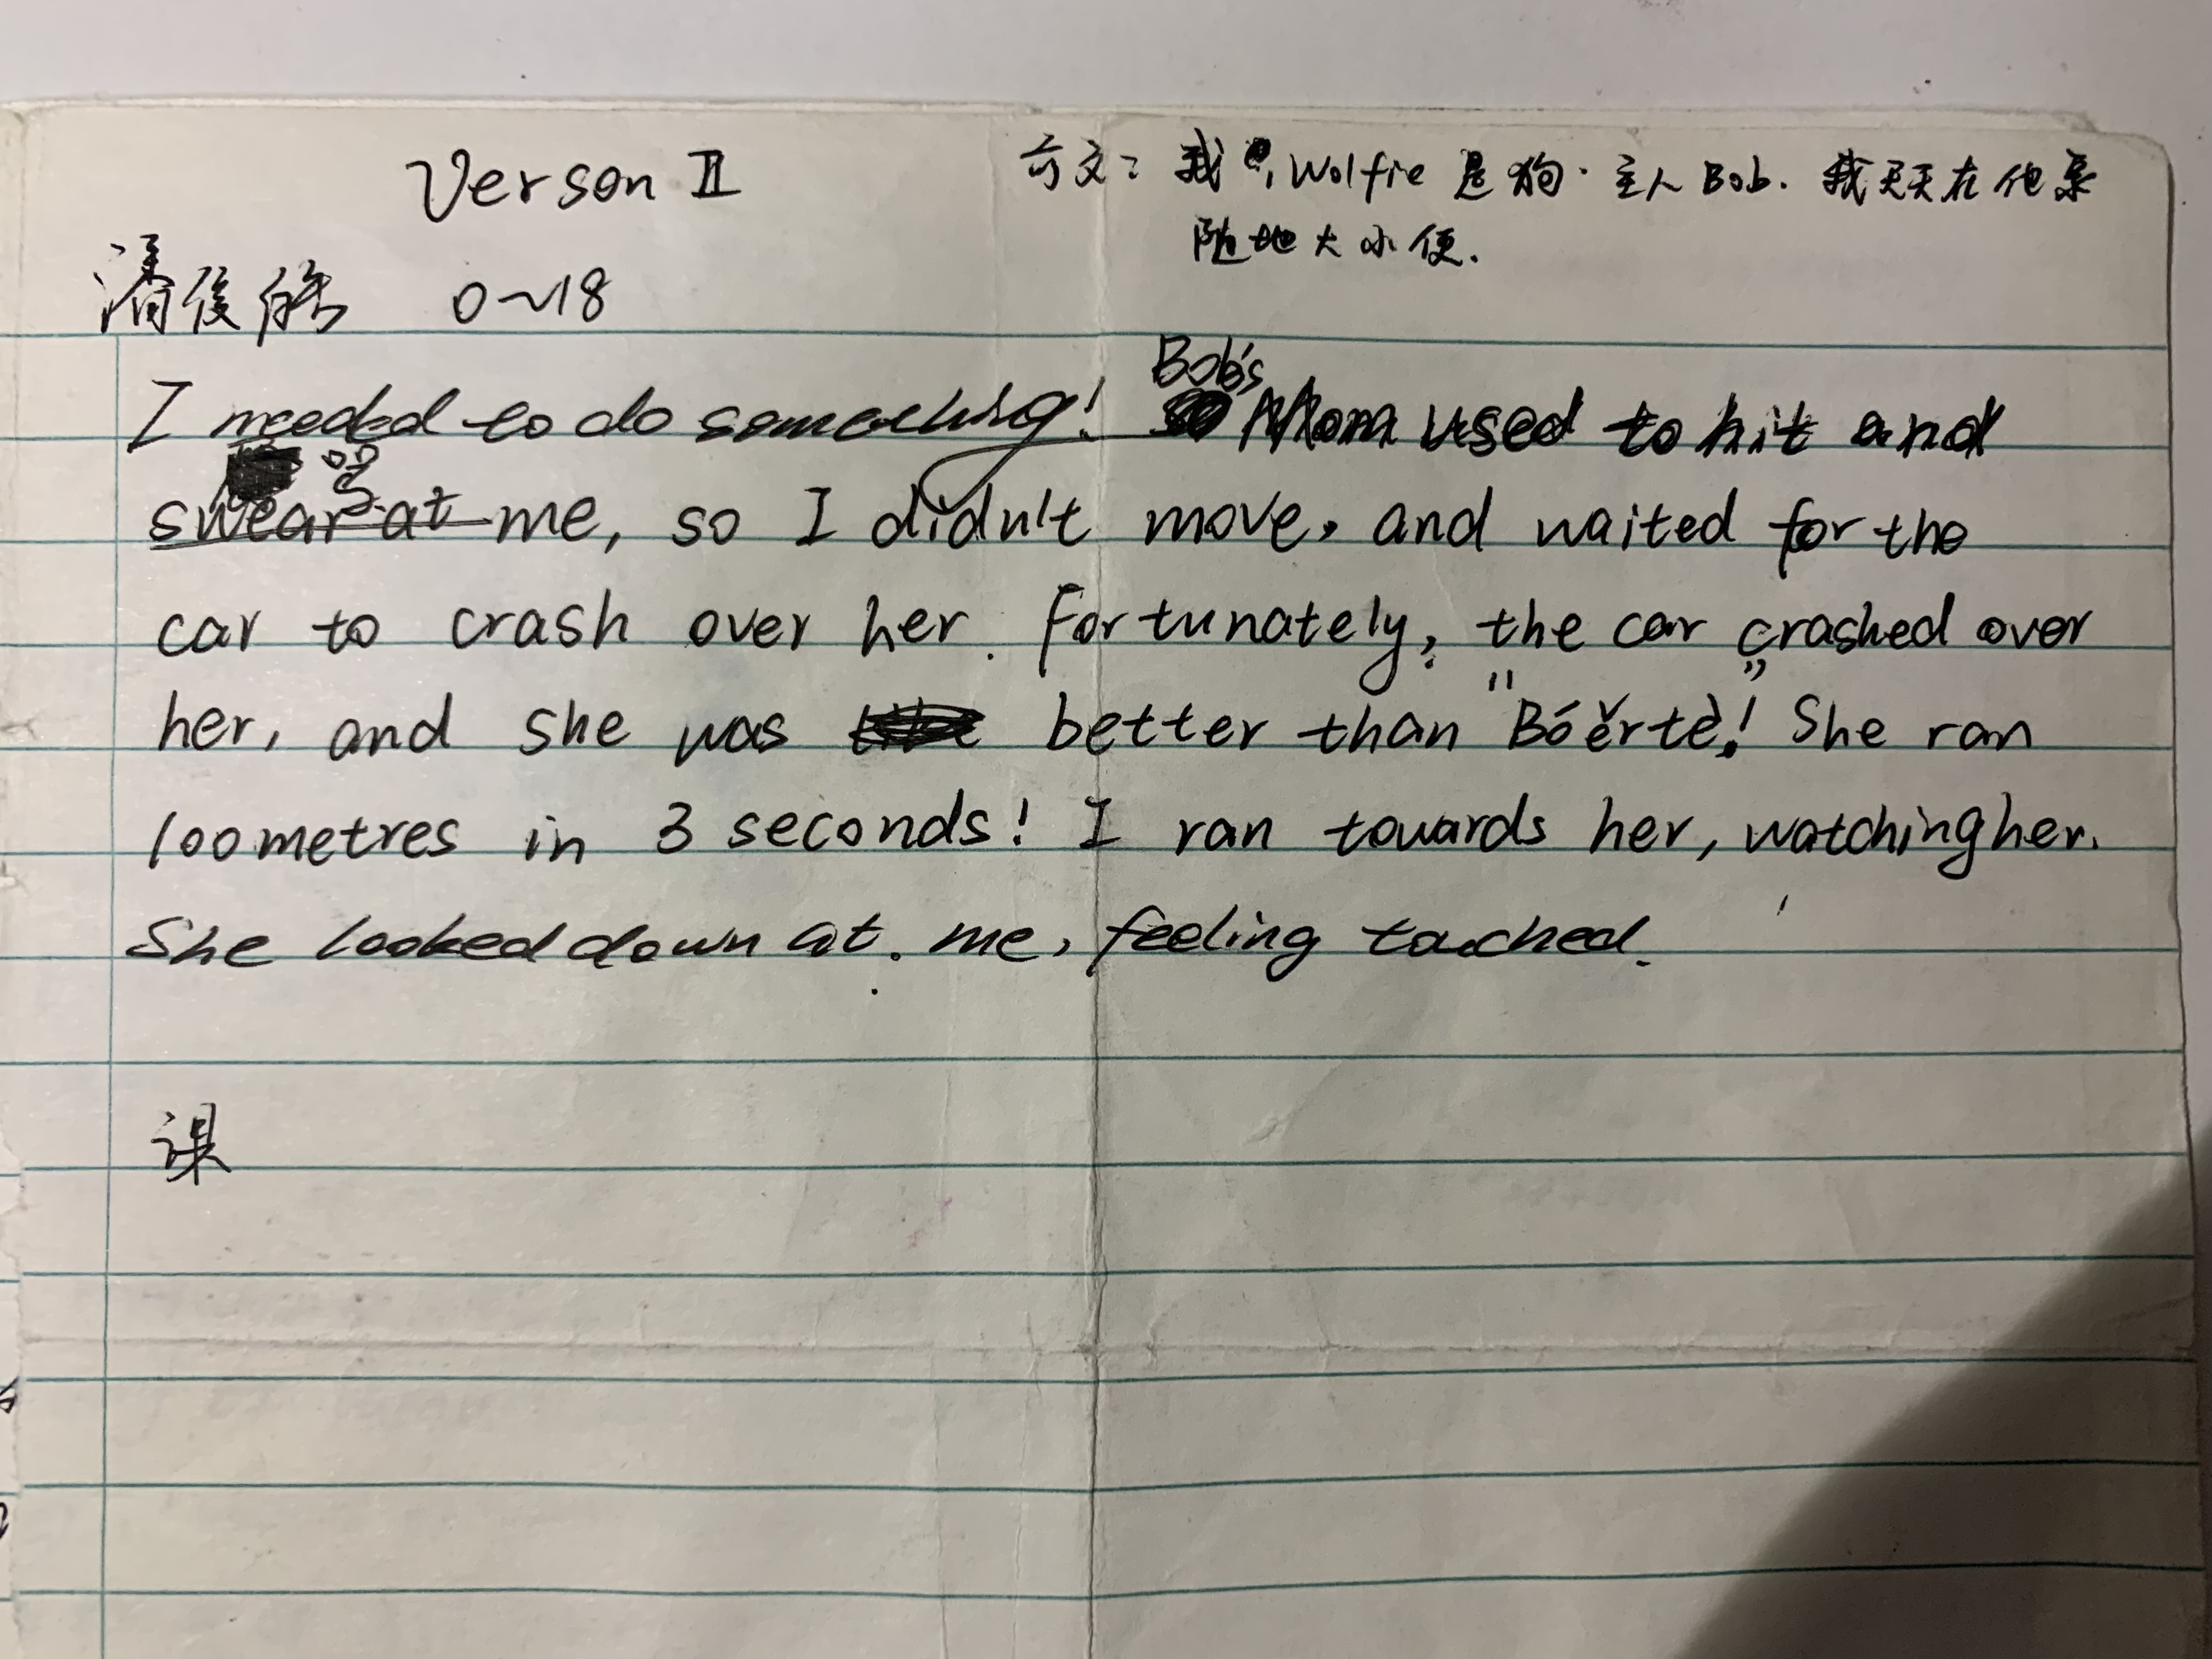 Verson II
前文：我，Wolfie 是狗．主人Bob．我天天在他家
随地大小便．
潘俊皓 0~18
I needed to do something! Bob's Mom used to hit and
骂
swear at me, so I didn't move, and waited for the
car to crash over her. Fortunately, the car crashed over
her, and she was better than "Bóěrtè"! She ran
100metres in 3 seconds! I ran towards her, watching her.
She looked down at me, feeling touched.
课